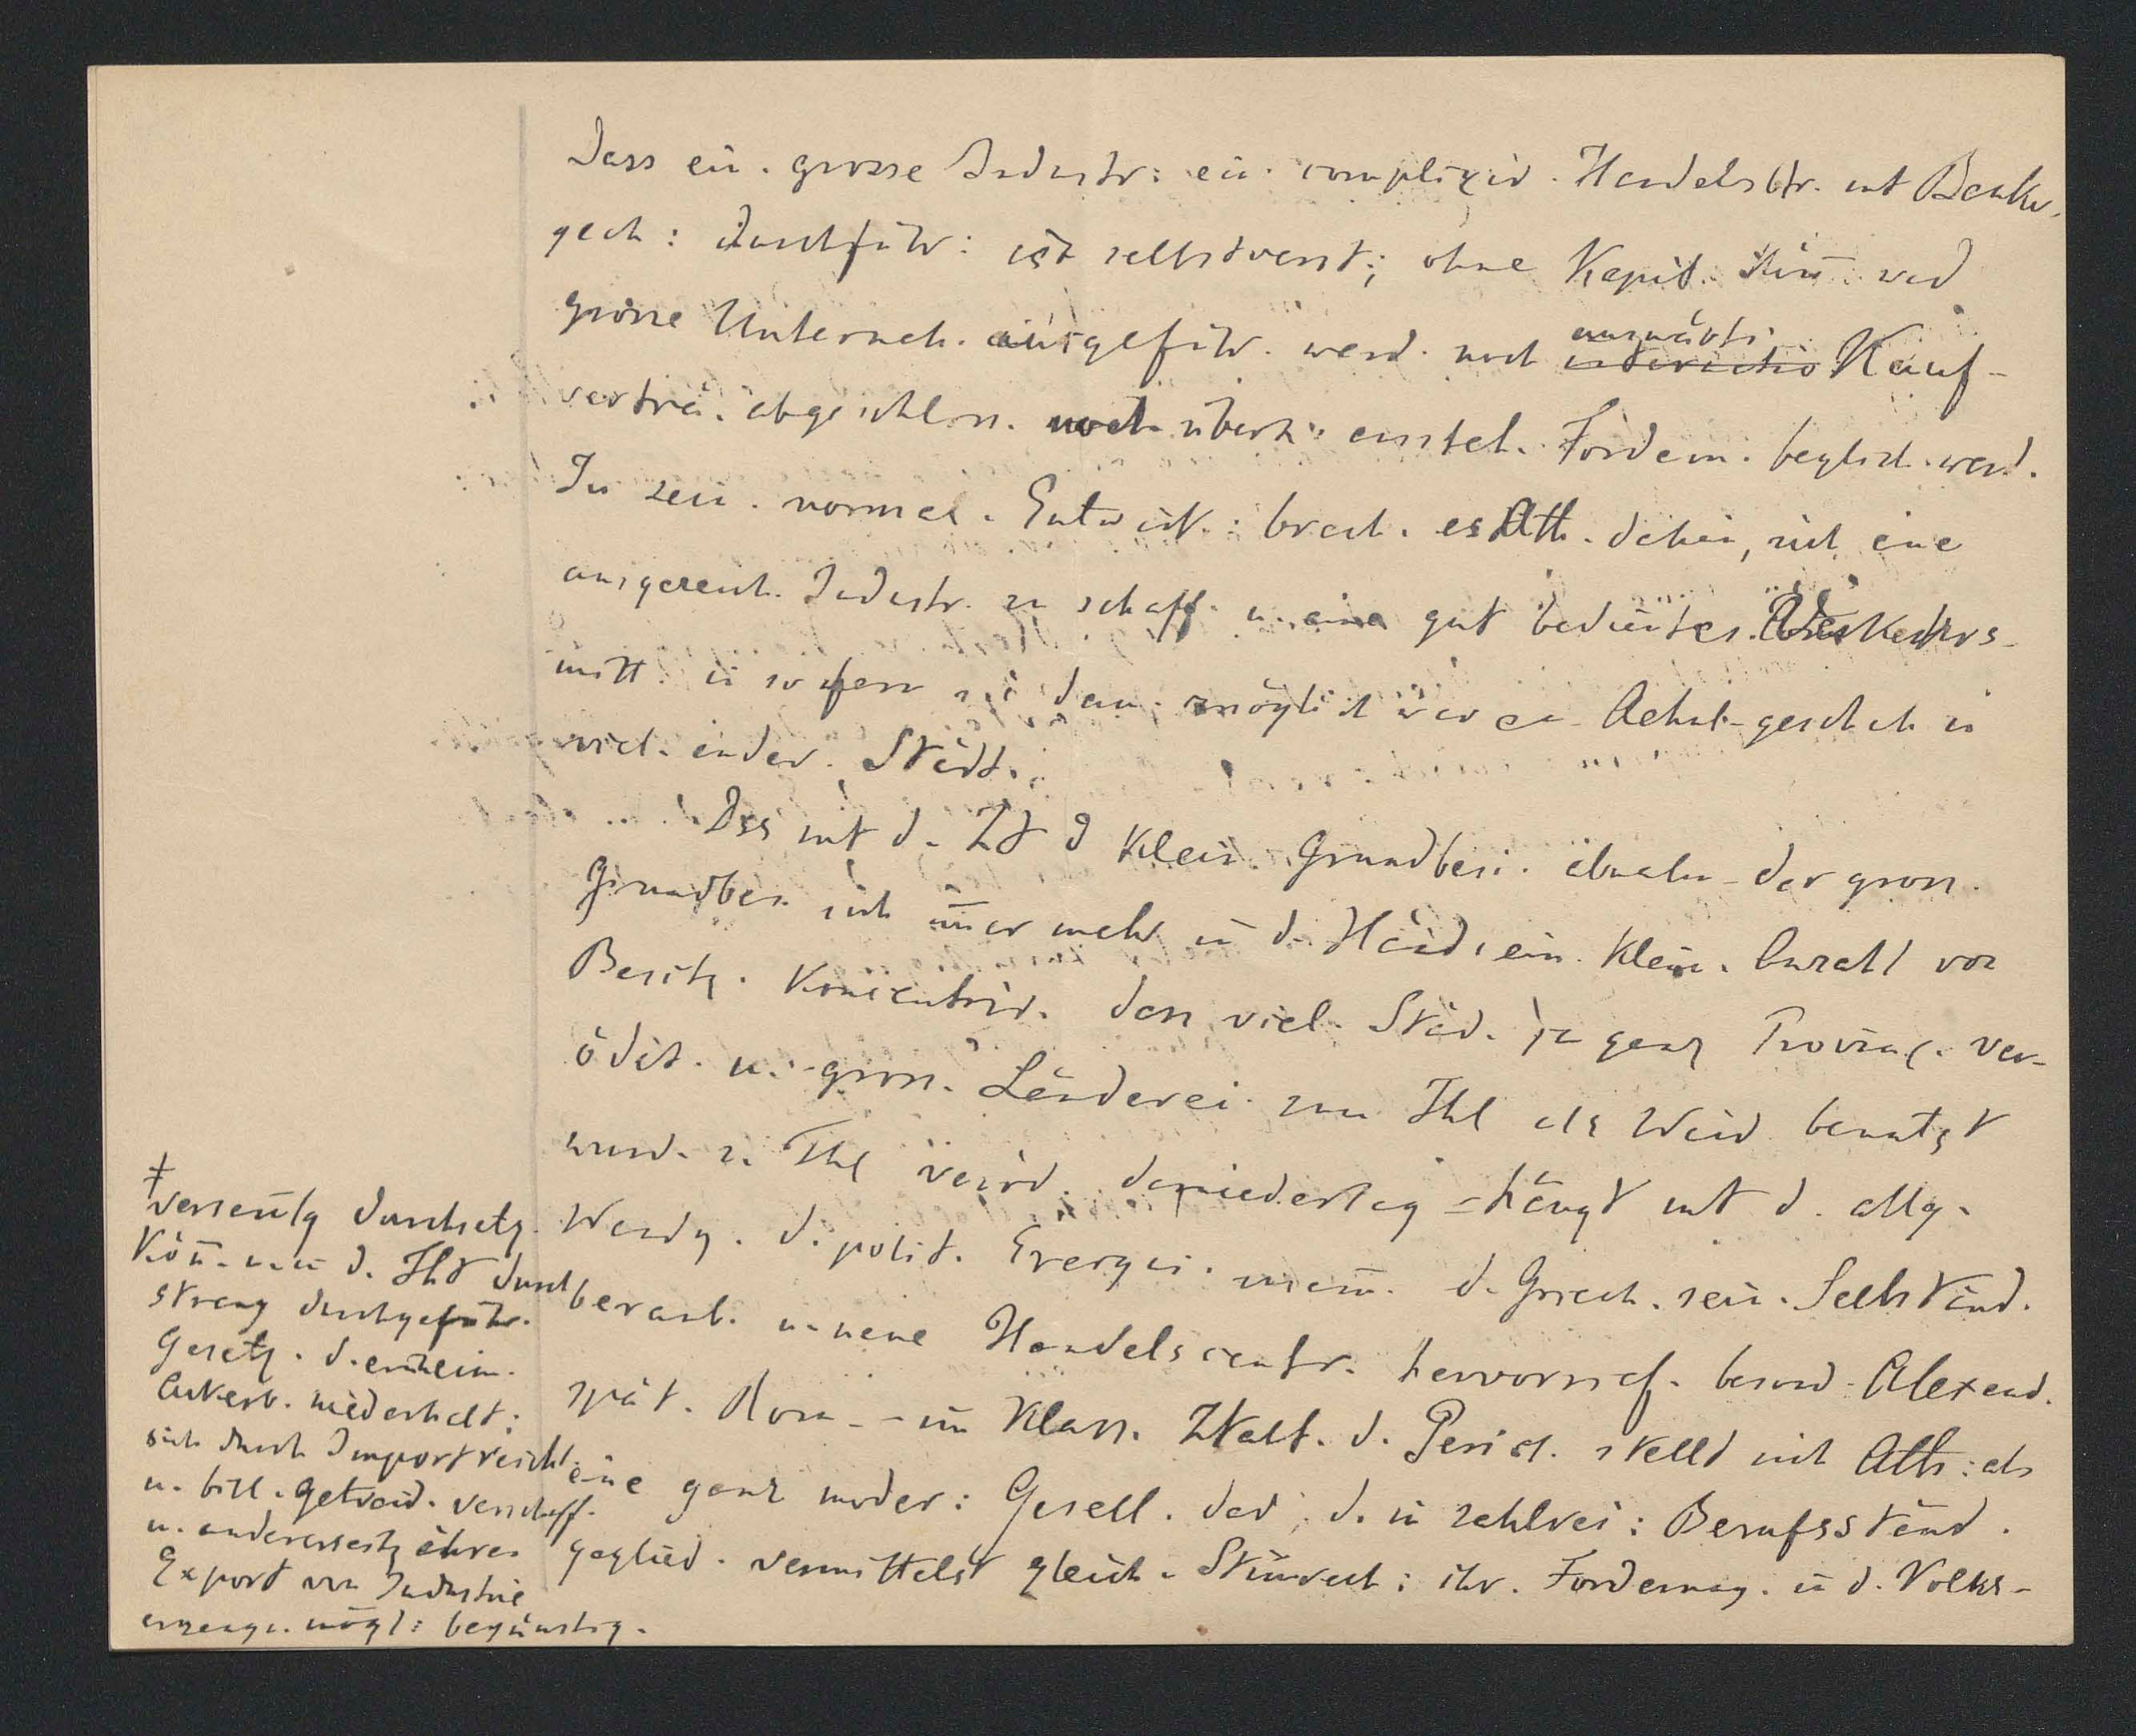 Dass ein. grosse Industr: ein. complizir. Handelsbtr. mt Bank-
gesch: durchführ: ist selbstverst; ohne Kapit. könn. wed
grösse Unterneh. ausgeführ. werd. noch auswärti. Kauf-
verträ. abgeschloss. noch überh. entsteh. Fordern. beglich. werd.
In sein. normal. Entwick.: brach. es Ath. dahin, sich eine
ausgezeich. Industr. zu schaff. u. eine gut bedientes Verkehrs-
mitt. in sofern es dam. möglich war en Aehnl. geschah in
viel. ander. Städt.
Dss mt d. Zt d klein. Grundbesi. abnahm der gross.
Grundbes. sich im̅er mehr in d. Händ. ein. klein. Anzahl von
Besitz. koncentrir. dass viel. Städ. ja ganz Provinz. ver-
ödet. u. gross. Länderei. zum Thl als Weid. benutzt
wurd. z. Thl verö̈d. darniederlag = hängt mt d. allg.
Wendg. d. polit. Ereign. zusam̅. d. Griech. sein. Selbständ.
beraub. u. neue Handelscentr. hervorrief. besond. Alexand.
spät. Rom - im klass. Ztalt. d. Perikl. stellt sich Ath: als
eine ganz moder: Gesell. dar, d. in zahlrei: Berufsständ.
geglied. vermittelst gleich. Stimrech: ihr. Forderung. in d. Volks-
‡
versamlg durchsetz.
Kön̅. u. in d. Tht durch
streng durchgeführ.
Gesetz. d. einheim.
Ackerb. niederhalt:
sich durch Import reichl.
u. bill. Getreid. verschaff.
u. andererseits ihren
Export von Industrie
erzeugn. mögl: begünstig.